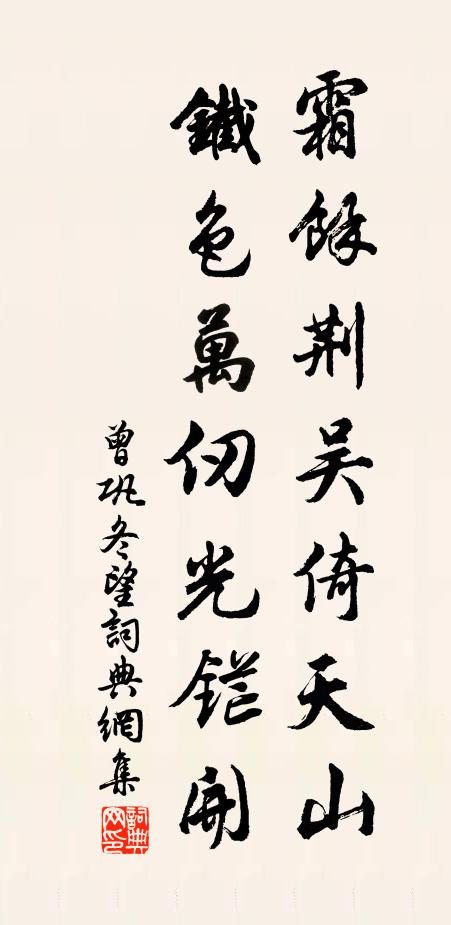 霜餘荆吴倚天山
鐵色萬仞光鋩開
曾巩冬望詞典網集
詞典網印